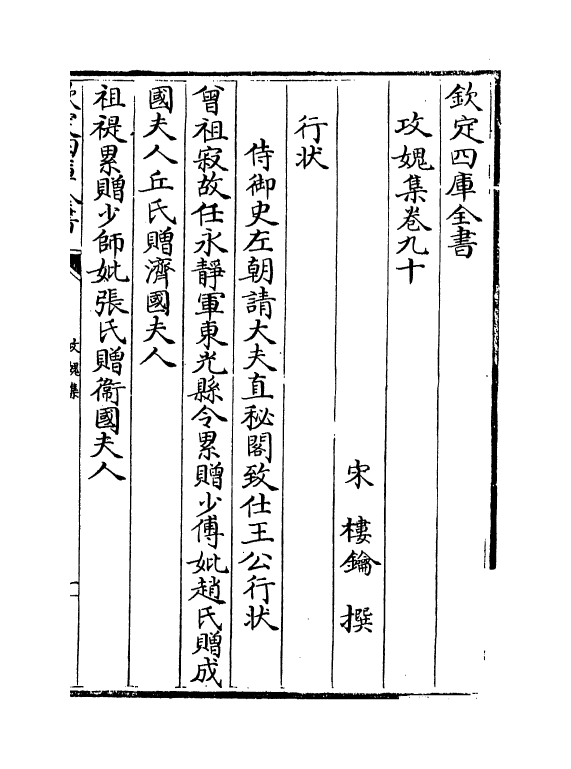 欽定四庫全書
攻媿集卷九十
宋　樓鑰　撰
行状
侍御史左朝請大夫直秘閣致仕王公行状
曾祖寂故任永靜軍東光縣令累贈少傅妣趙氏贈成
國夫人丘氏贈濟國夫人
祖禔累贈少師妣張氏贈衛國夫人
欽定四庫全書
攻媿集
一